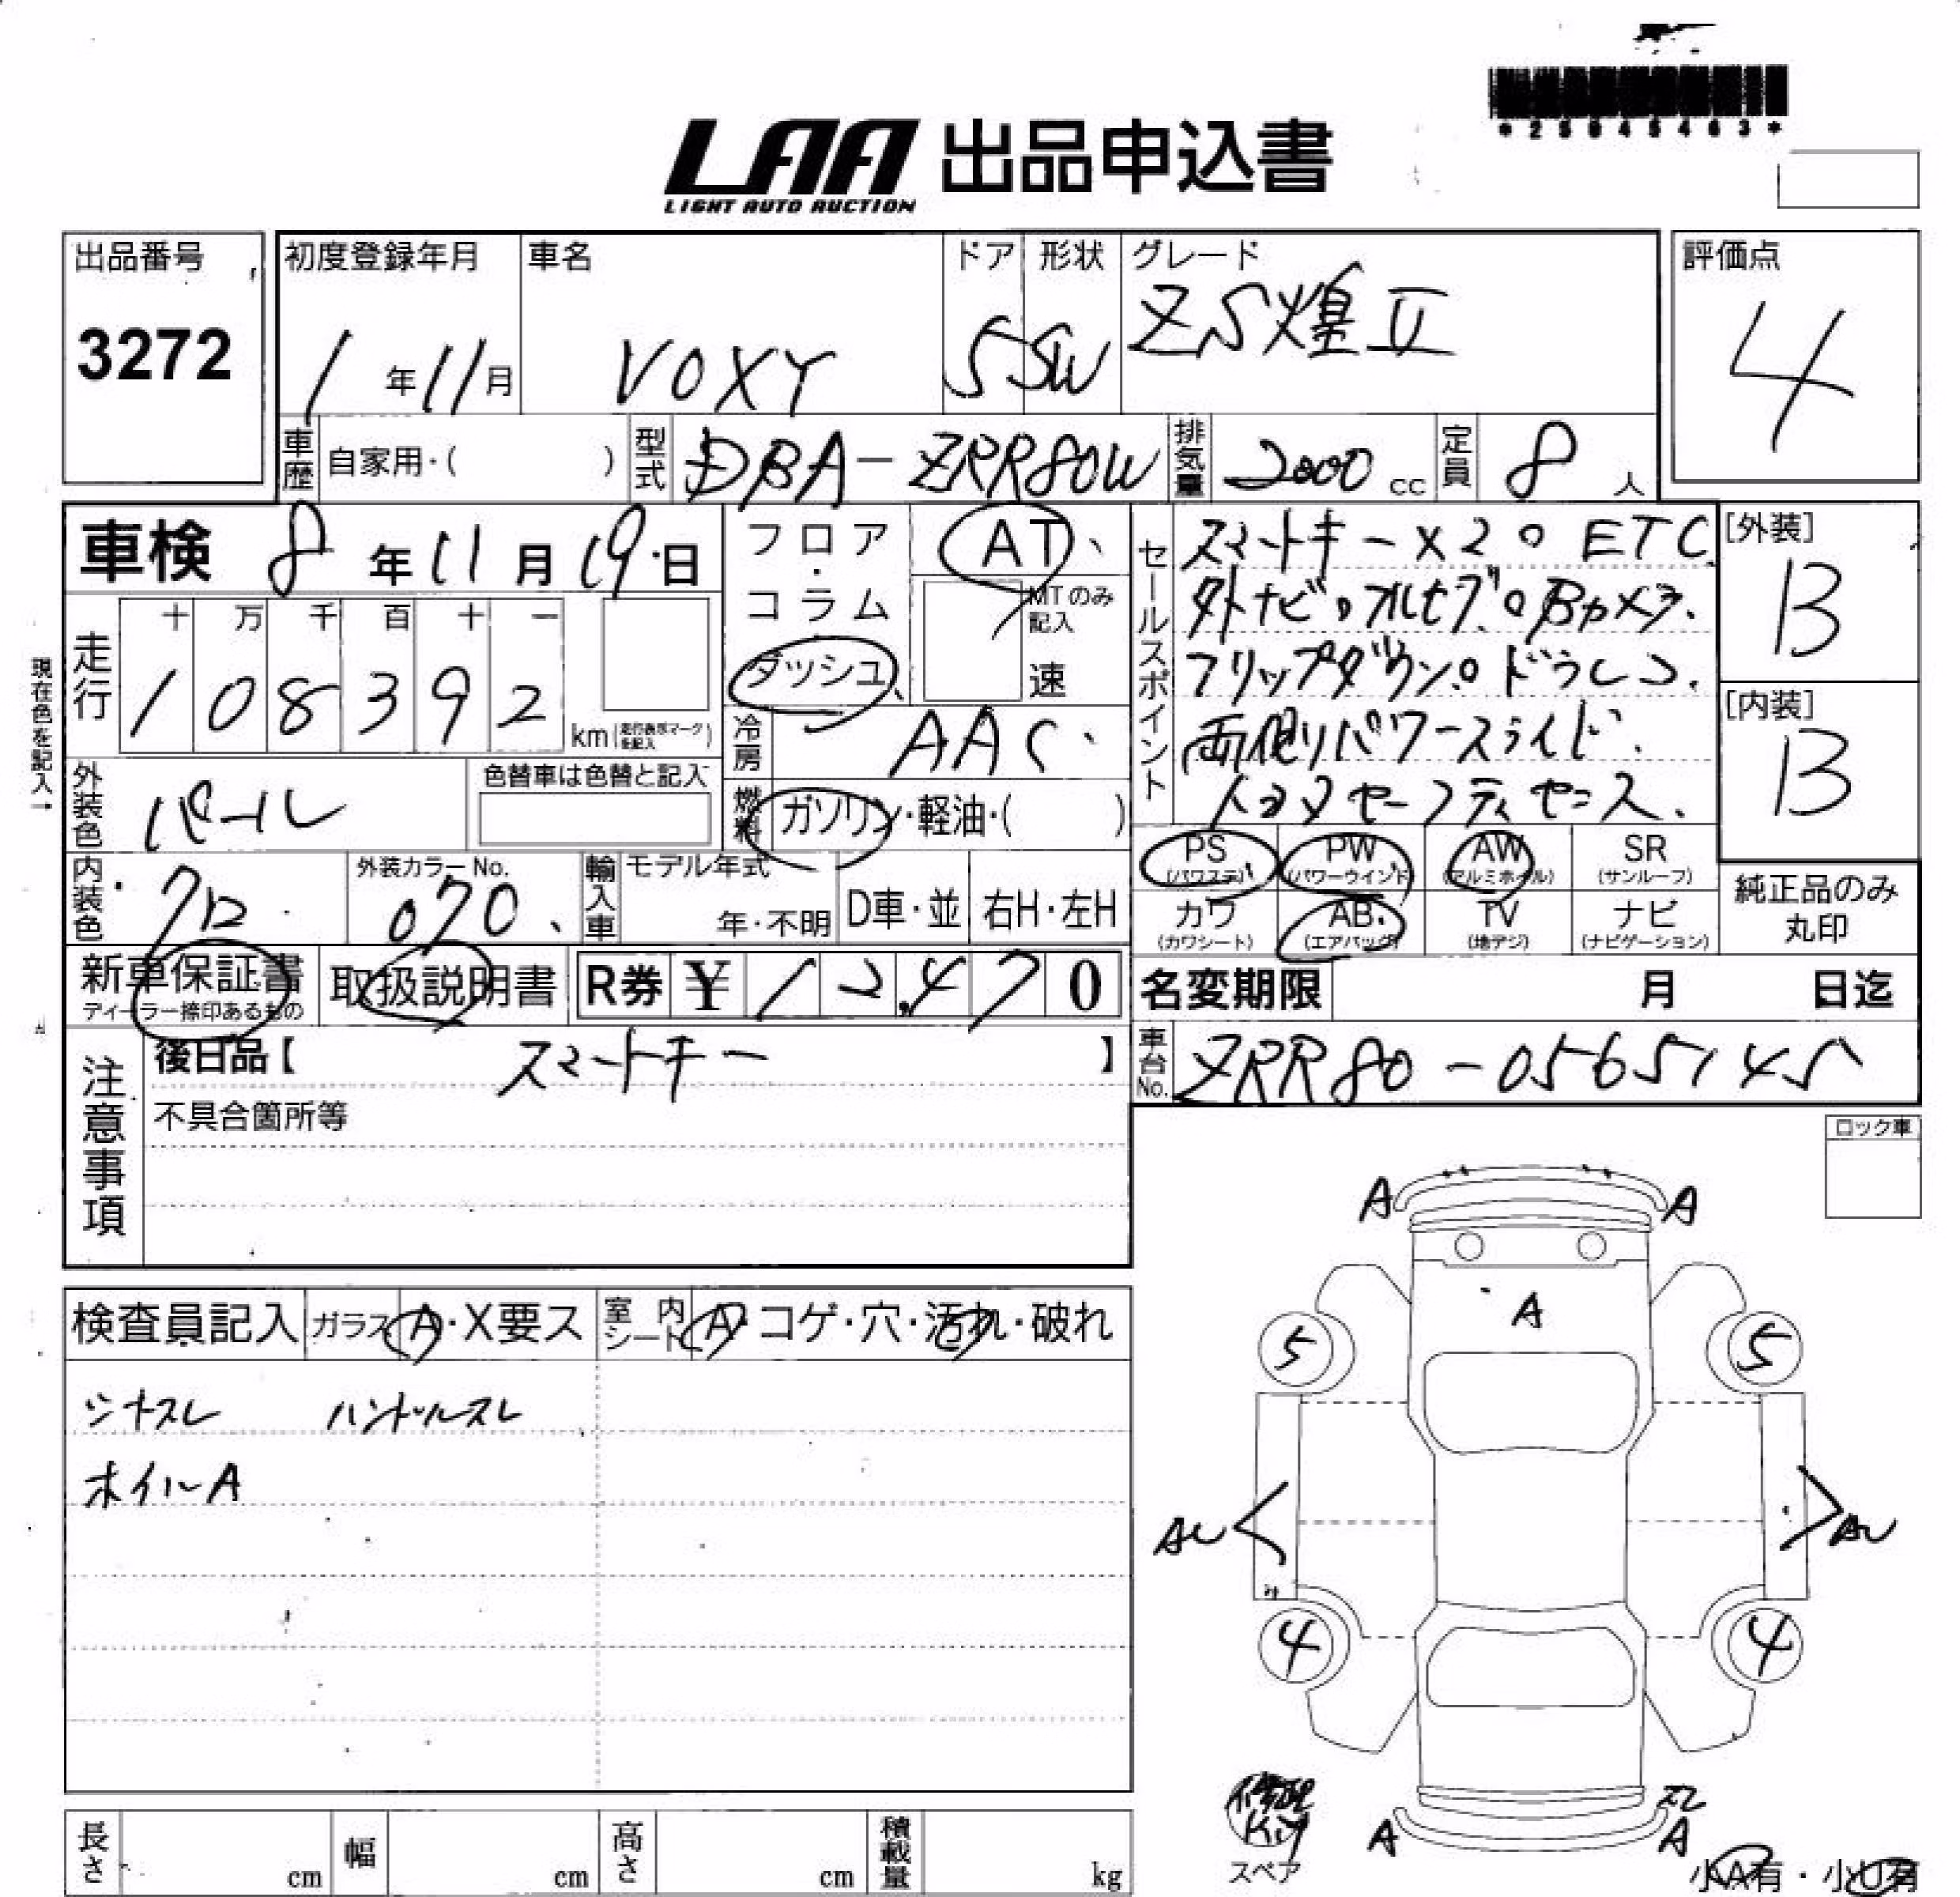 *25045463*
LAA 出品申込書
LIGHT AUTO AUCTION
出品番号
3272
初度登録年月
1年11月
車名
VOXY
ドア
5
形状
SW
グレード
ZS煌II
評価点
4
車歴
自家用・( )
型式
DBA-ZRR80W
排気量
2000 cc
定員
8人
車検 8年11月19日
現在色を記入→
走行
十 万 千 百 十 一
1 0 8 3 9 2
km(走行表示マークを記入)
フロア・コラム・ダッシュ
AT
MTのみ記入
速
冷房
AAC
燃料
ガソリン・軽油・( )
外装色
パール
色替車は色替と記入
内装色
クロ
外装カラーNo.
070
輸入車
モデル年式
年・不明
D車・並
右H・左H
セールスポイント
スマートキー×2。ETC
外ナビ。フルセグ。Bカメラ.
フリップダウン。ドラレコ.
両側パワースライド.
トヨタセーフティセンス.
[外装]
B
[内装]
B
PS
(パワステ)
PW
(パワーウインド)
AW
(アルミホイル)
SR
(サンルーフ)
カワ
(カワシート)
AB
(エアバッグ)
TV
(地デジ)
ナビ
(ナビゲーション)
純正品のみ
丸印
新車保証書
ディーラー捺印あるもの
取扱説明書
R券 ¥ 12,470
名変期限 月 日迄
車台No.
ZRR80-0565145
注意事項
後日品【 スマートキー 】
不具合箇所等
ロック車
検査員記入
ガラス A・X要ス
室内シート A・コゲ・穴・汚れ・破れ
シナスレ ハンドルスレ
ホイルA
A A
A
5 5
AU AU
4 4
スレ
A A
修理
Kit
スペア
小A有・小U有
長さ cm
幅 cm
高さ cm
積載量 kg